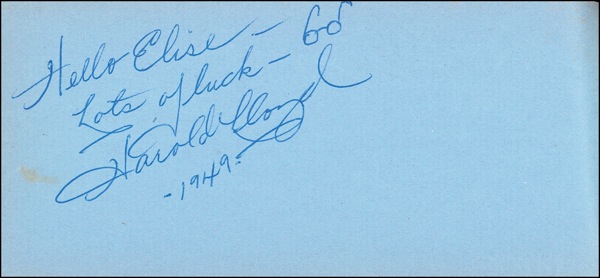 Hello Elise –
Lots of luck –
Harold Lloyd
- 1949 -